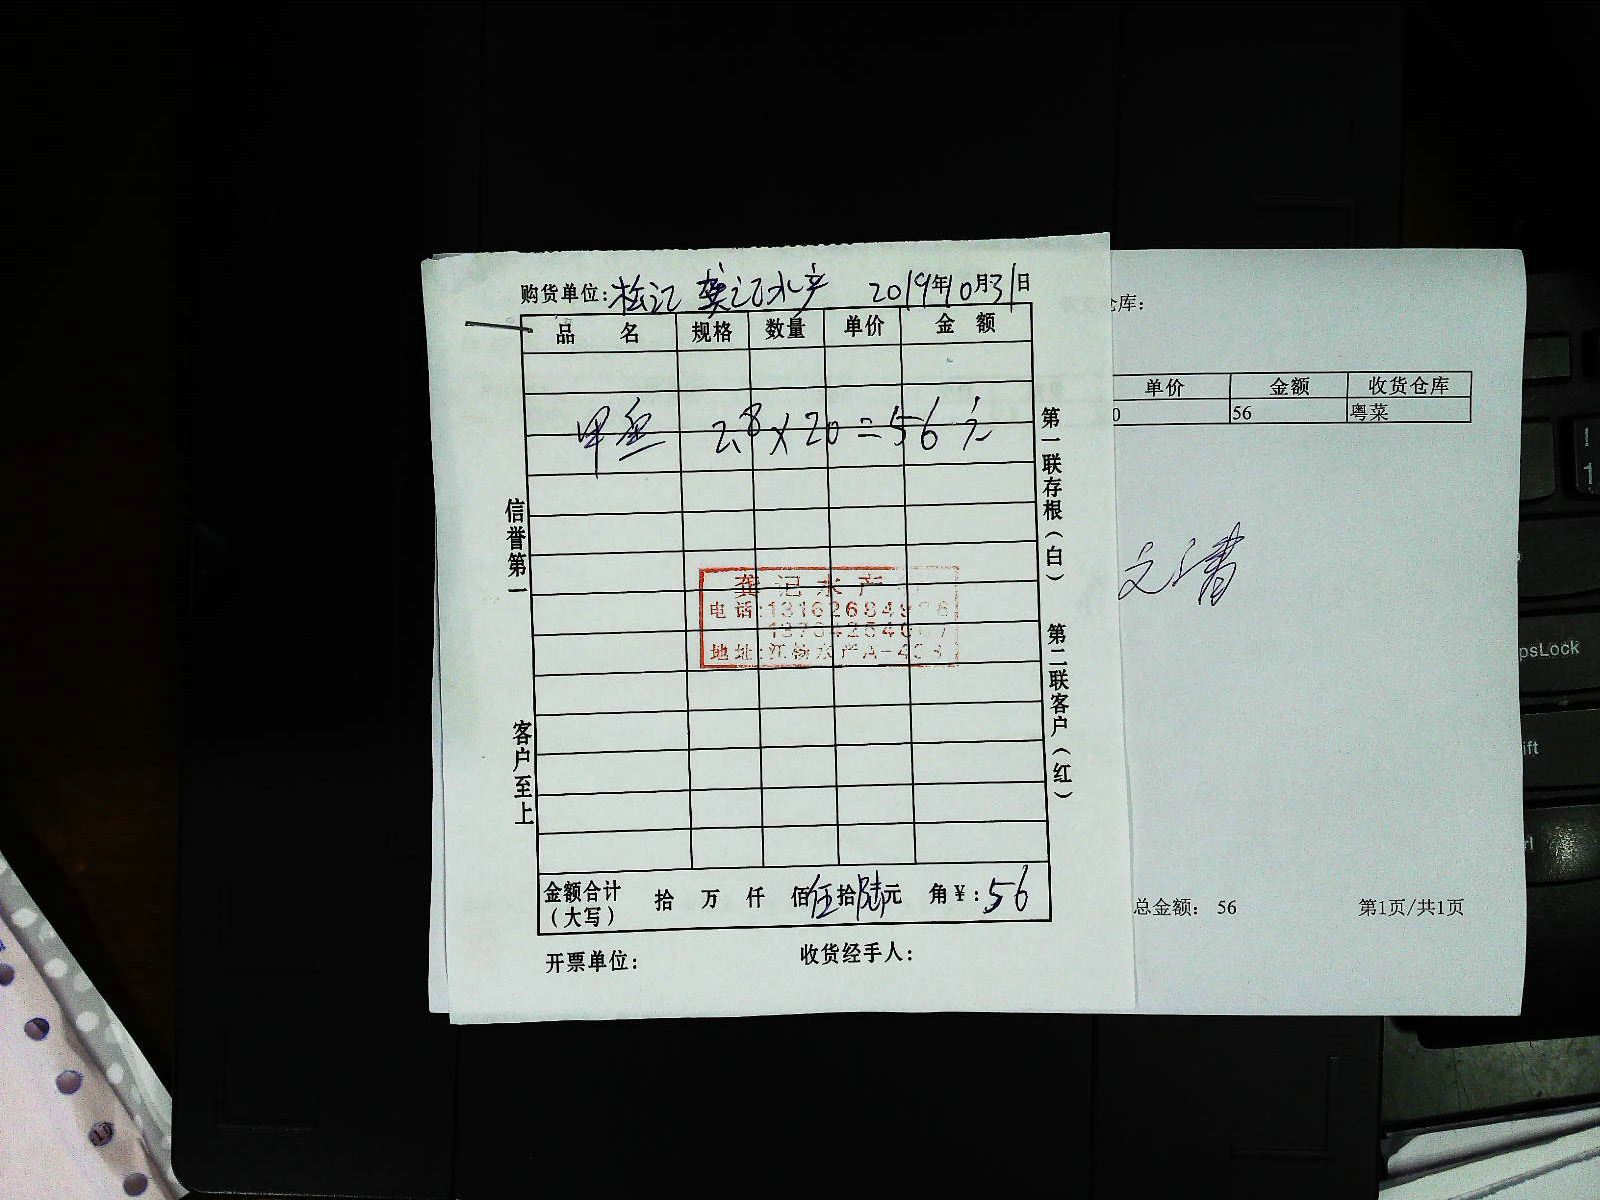 购货单位：桧记 龚记水产 2019年10月31日
品 名 规格 数量 单价 金 额
甲鱼 2.8×20=56元
信誉第一
客户至上
第一联存根（白）
第二联客户（红）
龚记水产
电话:13162684926
地址:江杨水产A-433
金额合计（大写） 拾 万 仟 佰伍拾陆元 角¥:56
开票单位： 收货经手人：
仓库：
单价 金额 收货仓库
0 56 粤菜
总金额： 56 第1页/共1页
psLock